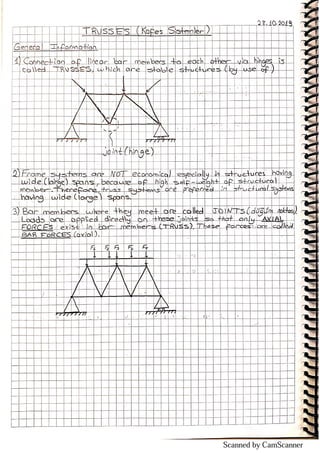 28.10.2019
TRUSSES (Kafes Sistemler)
General Information
1) Connection of linear bar members to each other via hinges is
called TRUSSES, which are stable structures (by use of )
joint (hinge)
2) Frame systems are NOT economical especially in structures having
wide (large) spans, because of high self-weight of structural
member. Therefore, truss systems are preferred in structural systems
having wide (large) spans.
3) Bar members where they meet are called JOINTS (düğüm noktası)
Loads are applied directly on these joints so that only AXIAL
FORCES exist in bar members (TRUSS). These forces are called
BAR FORCES (axial).
Scanned by CamScanner